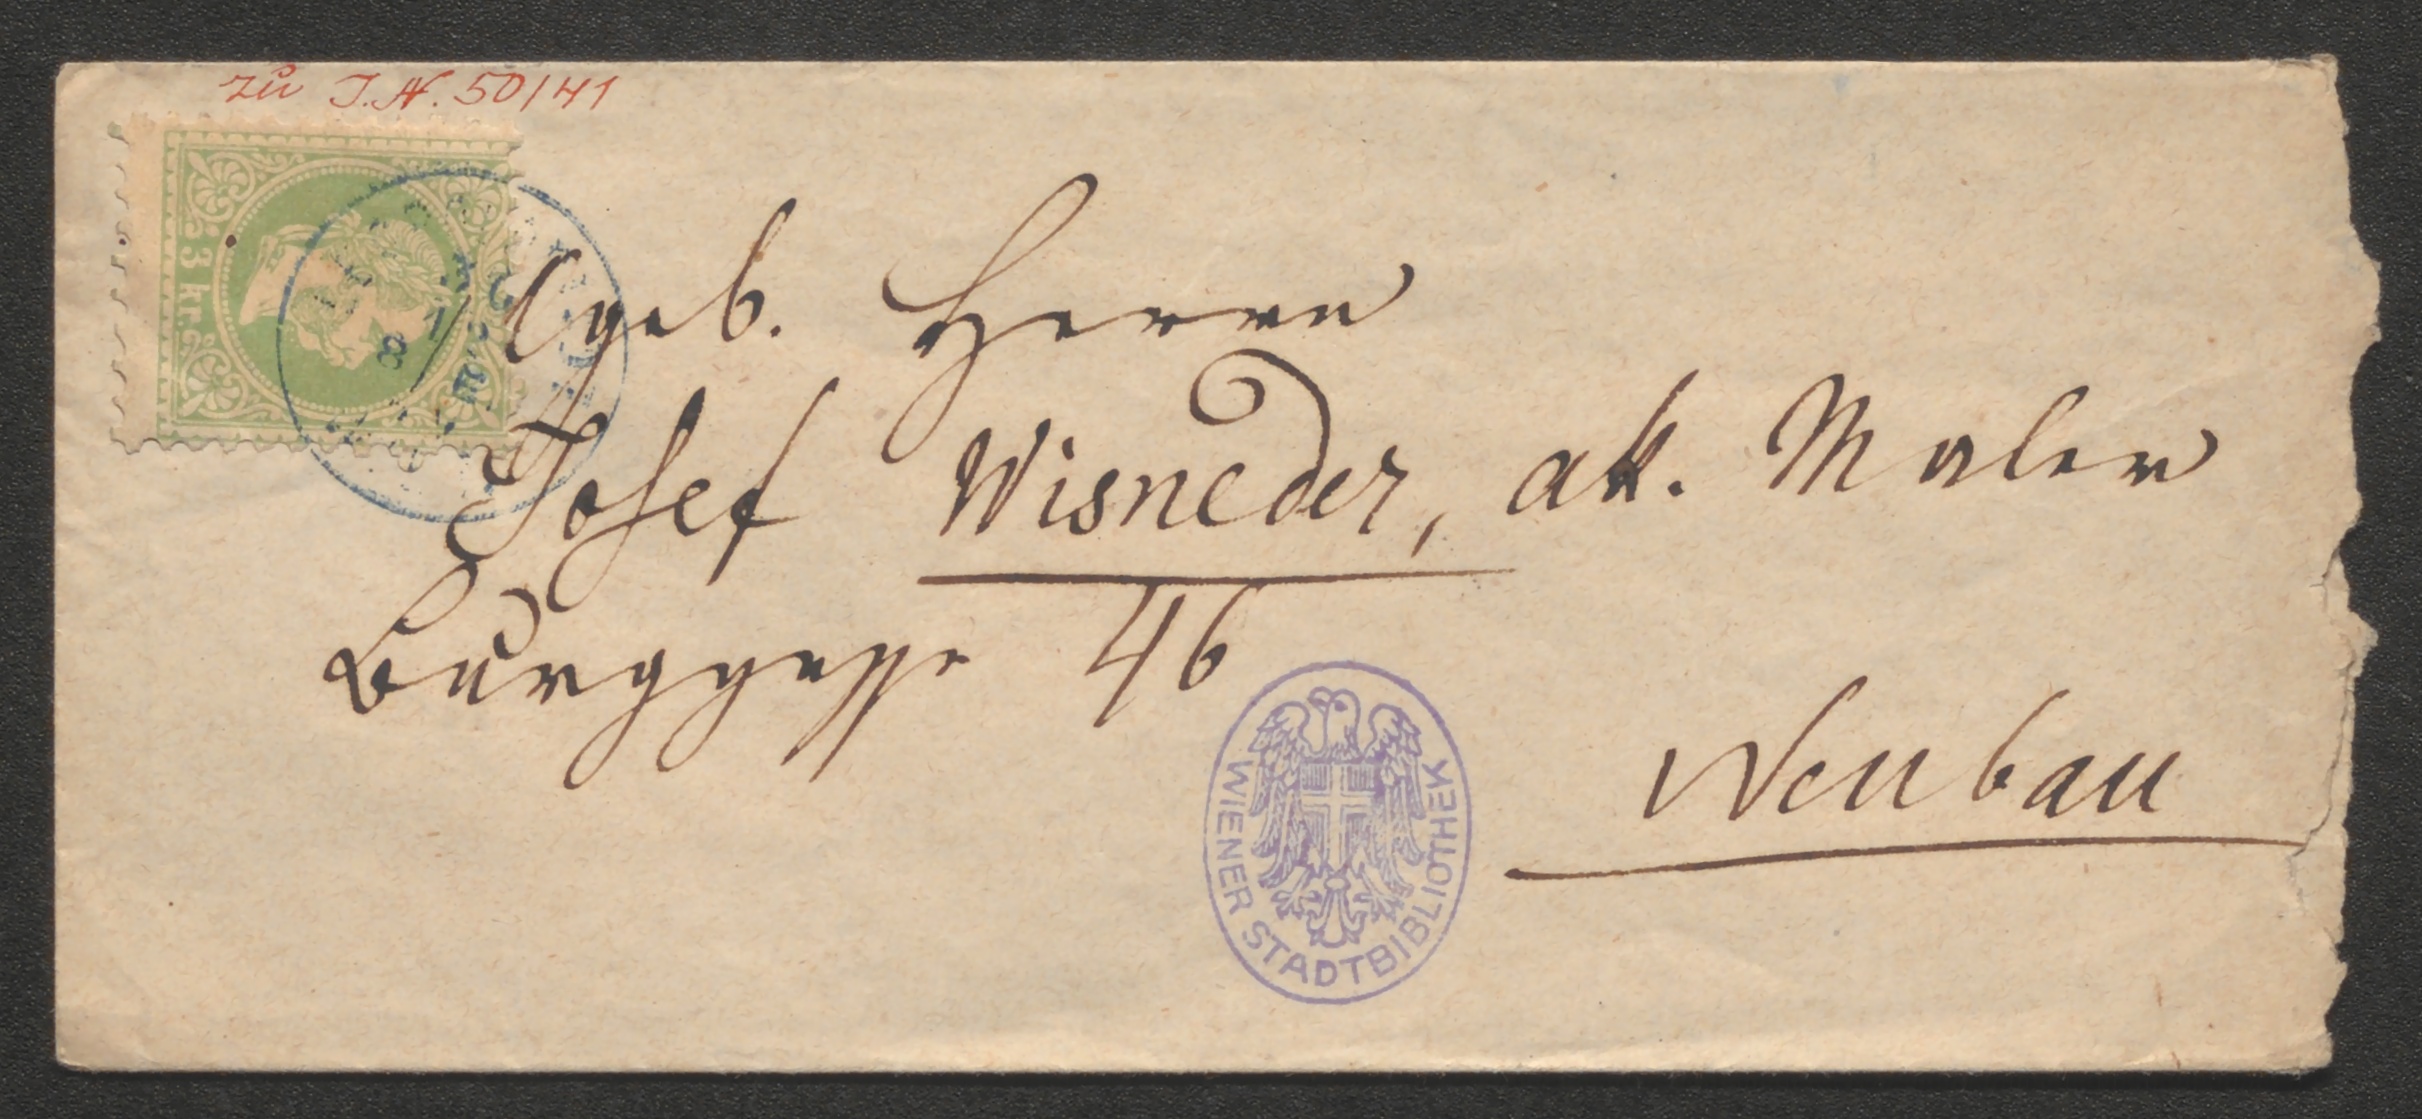 zu J.N. 50/41
3 kr.
Herrn
Josef Wisneder, ak. Maler
Burggasse 46
Neubau
WIENER STADTBIBLIOTHEK